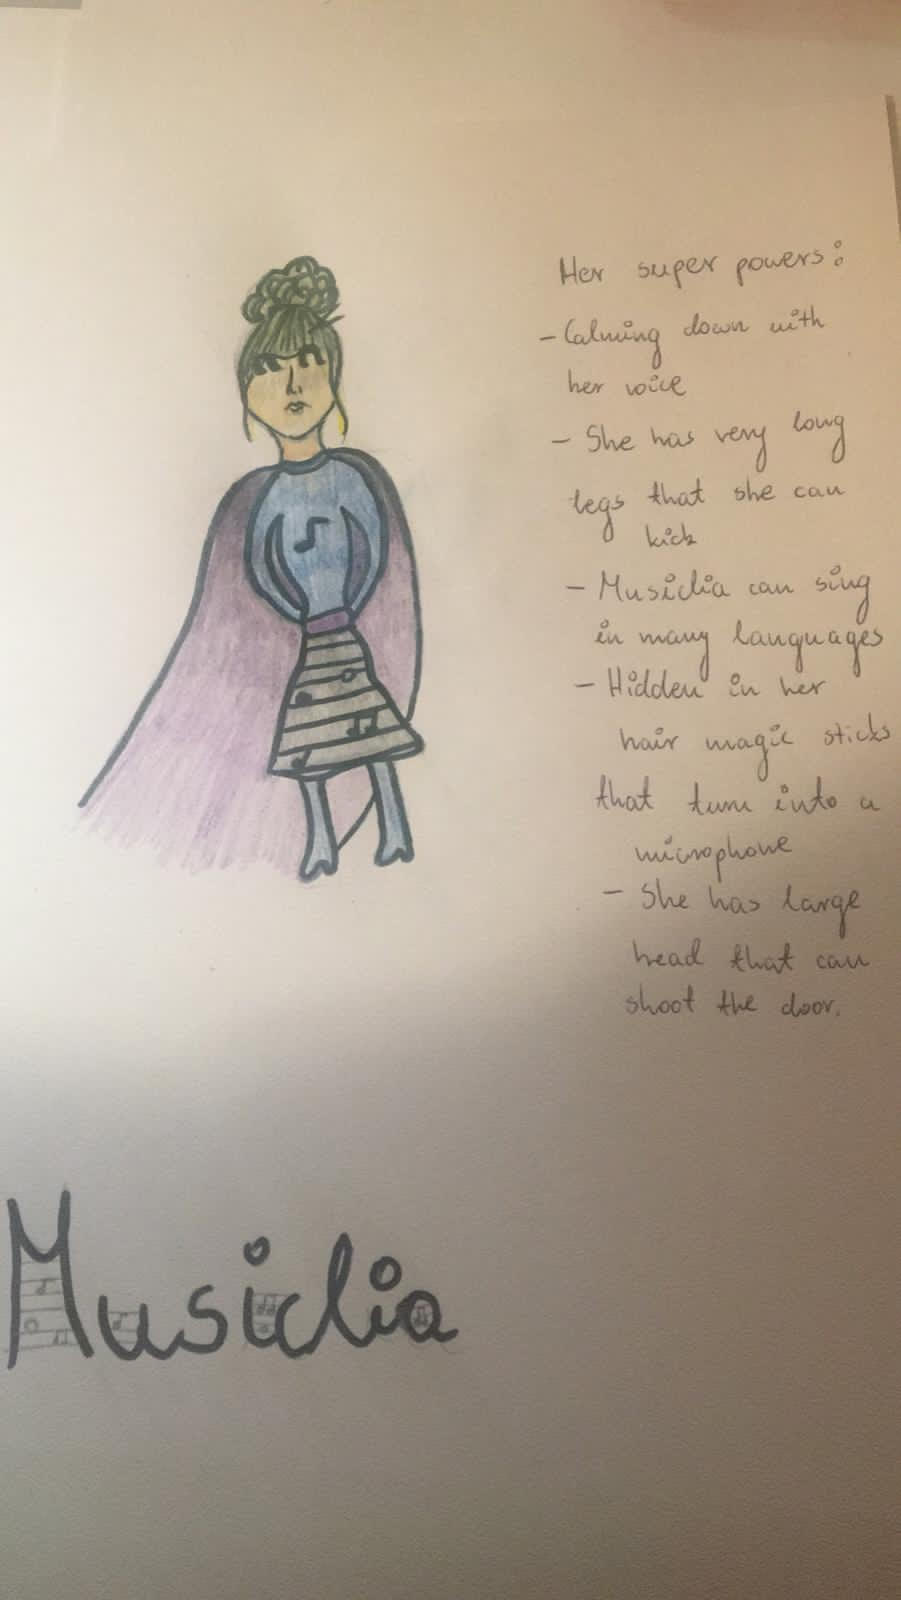 Her super powers:
- Calming down with
her voice
- She has very long
legs that she can
kick
- Musiclia can sing
in many languages
- Hidden in her
hair magic sticks
that turn into a
microphone
- She has large
head that can
shoot the door.
Musiclia